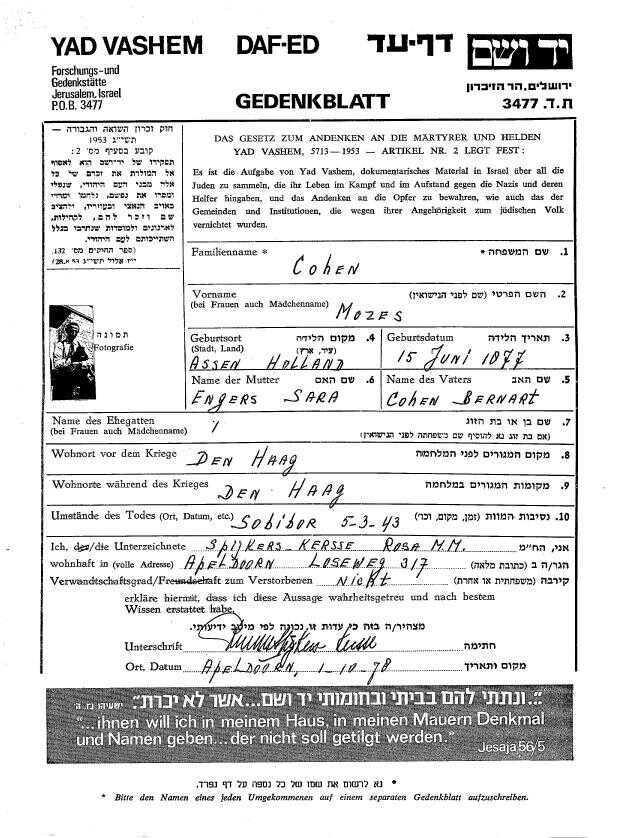 YAD VASHEM DAF-ED דף-עד יד ושם
Forschungs-und
Gedenkstätte
Jerusalem, Israel
P.O.B. 3477
GEDENKBLATT
ירושלים, הר הזיכרון
ת.ד. 3477
חוק זכרון השואה והגבורה —
תשי"ג 1953
קובע בסעיף מס' 2:
תפקידו של יד-ושם הוא לאסוף
אל המולדת את זכרם של כל
אלה מבני העם היהודי, שנפלו
ומסרו את נפשם, נלחמו ומרדו
באויב הנאצי ובעוזריו, ולהציב
שם וזכר להם, לקהילות,
לארגונים ולמוסדות שנחרבו בגלל
השתייכותם לעם היהודי.
(ספר החוקים מס' 132,
י"ז אלול תשי"ג 28.8.53)
DAS GESETZ ZUM ANDENKEN AN DIE MÄRTYRER UND HELDEN
YAD VASHEM, 5713-1953 — ARTIKEL NR. 2 LEGT FEST:
Es ist die Aufgabe von Yad Vashem, dokumentarisches Material in Israel über all die
Juden zu sammeln, die ihr Leben im Kampf und im Aufstand gegen die Nazis und deren
Helfer hingaben, und das Andenken an die Opfer zu bewahren, wie auch das der
Gemeinden und Institutionen, die wegen ihrer Angehörigkeit zum jüdischen Volk
vernichtet wurden.
Familienname * 1. שם המשפחה *
Cohen
Vorname 2. השם הפרטי (שם לפני הנישואין)
(bei Frauen auch Mädchenname)
Mozes
תמונה
Fotografie
Geburtsort 4. מקום הלידה
(Stadt, Land) (עיר, ארץ)
Assen Holland
Geburtsdatum 3. תאריך הלידה
15 Juni 1877
Name der Mutter 6. שם האם
Engers Sara
Name des Vaters 5. שם האב
Cohen Bernart
Name des Ehegatten 7. שם בן או בת הזוג
(bei Frauen auch Mädchenname) (אם בת זוג נא להוסיף שם משפחתה לפני הנישואין)
Wohnort vor dem Kriege Den Haag 8. מקום המגורים לפני המלחמה
Wohnorte während des Krieges Den Haag 9. מקומות המגורים במלחמה
Umstände des Todes (Ort, Datum, etc.) Sobibor 5-3-43 10. נסיבות המוות (זמן, מקום, וכו')
Ich, der/die Unterzeichnete Spijkers-Kersse Rosa M.M. אני, הח"מ
wohnhaft in (volle Adresse) Apeldoorn Loseweg 317 הגר/ה ב (כתובת מלאה)
Verwandtschaftsgrad/Freundschaft zum Verstorbenen Nicht קירבה (משפחתית או אחרת)
erkläre hiermit, dass ich diese Aussage wahrheitsgetreu und nach bestem
Wissen erstattet habe.
מצהיר/ה בזה כי עדות זו נכונה לפי מיטב ידיעותי.
Unterschrift חתימה
Ort, Datum Apeldoorn, 1-10-78 מקום ותאריך
"...ונתתי להם בביתי ובחומותי יד ושם...אשר לא יכרת" ישעיהו נו, ה
"...ihnen will ich in meinem Haus, in meinen Mauern Denkmal
und Namen geben...der nicht soll getilgt werden."
Jesaja 56/5
* נא לרשום את שמו של כל נספה על דף נפרד.
* Bitte den Namen eines jeden Umgekommenen auf einem separaten Gedenkblatt aufzuschreiben.